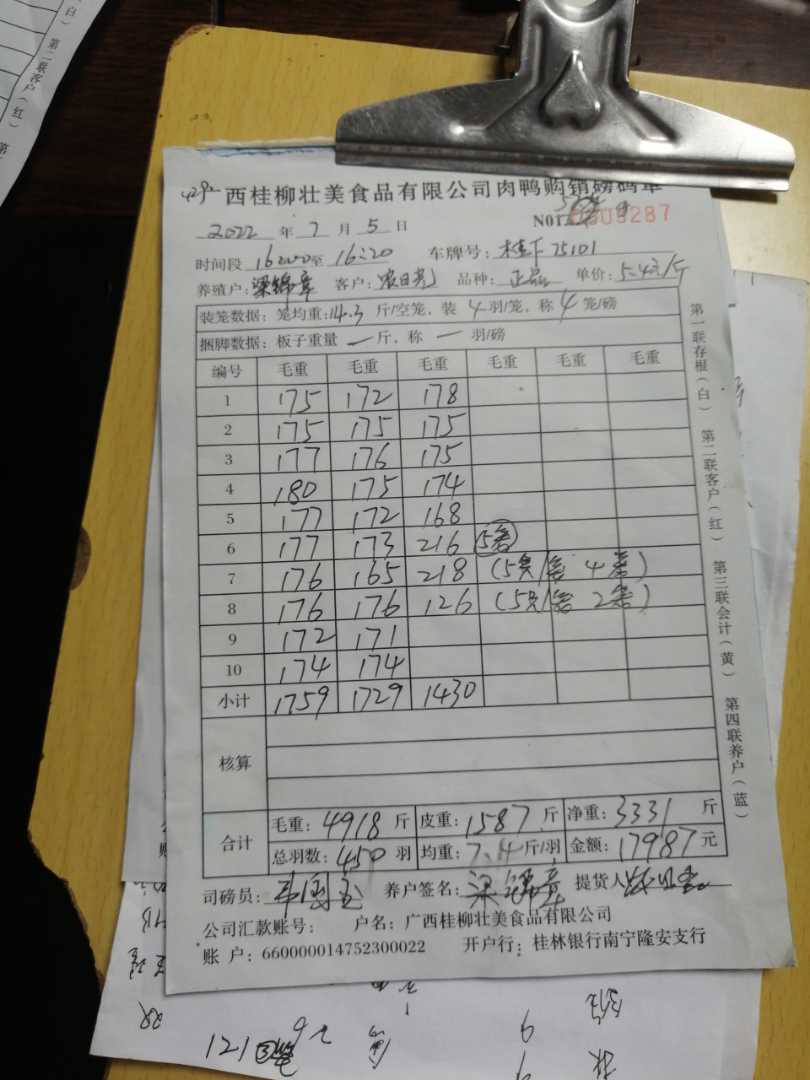 广西桂柳壮美食品有限公司肉鸭购销磅码单
2022 年 7 月 5 日 N01 0003287
时间段 16:00至 16:20 车牌号: 桂F 75101
养殖户: 梁锦章 客户: 品种: 正品 单价: 5.4元/斤
装笼数据: 笼均重:14.3 斤/空笼, 装 4 羽/笼, 称 4 笼/磅
捆脚数据: 板子重量 — 斤, 称 — 羽/磅
编号 毛重 毛重 毛重 毛重 毛重 毛重
1 175 172 178
2 175 175 175
3 177 176 175
4 180 175 174
5 177 172 168
6 177 173 216 5笼
7 176 165 218 (5只/笼 4笼)
8 176 176 126 (5只/笼 2笼)
9 172 171
10 174 174
小计 1759 1729 1430
核算
合计 毛重: 4918 斤 皮重: 1587 斤 净重: 3331 斤
总羽数: 450 羽 均重: 7.4 斤/羽 金额: 17987 元
司磅员: 养户签名: 梁锦章 提货人
公司汇款账号: 户名: 广西桂柳壮美食品有限公司
账 户: 660000014752300022 开户行: 桂林银行南宁隆安支行
第一联存根(白) 第二联客户(红) 第三联会计(黄) 第四联养户(蓝)
第二联客户(红)
121